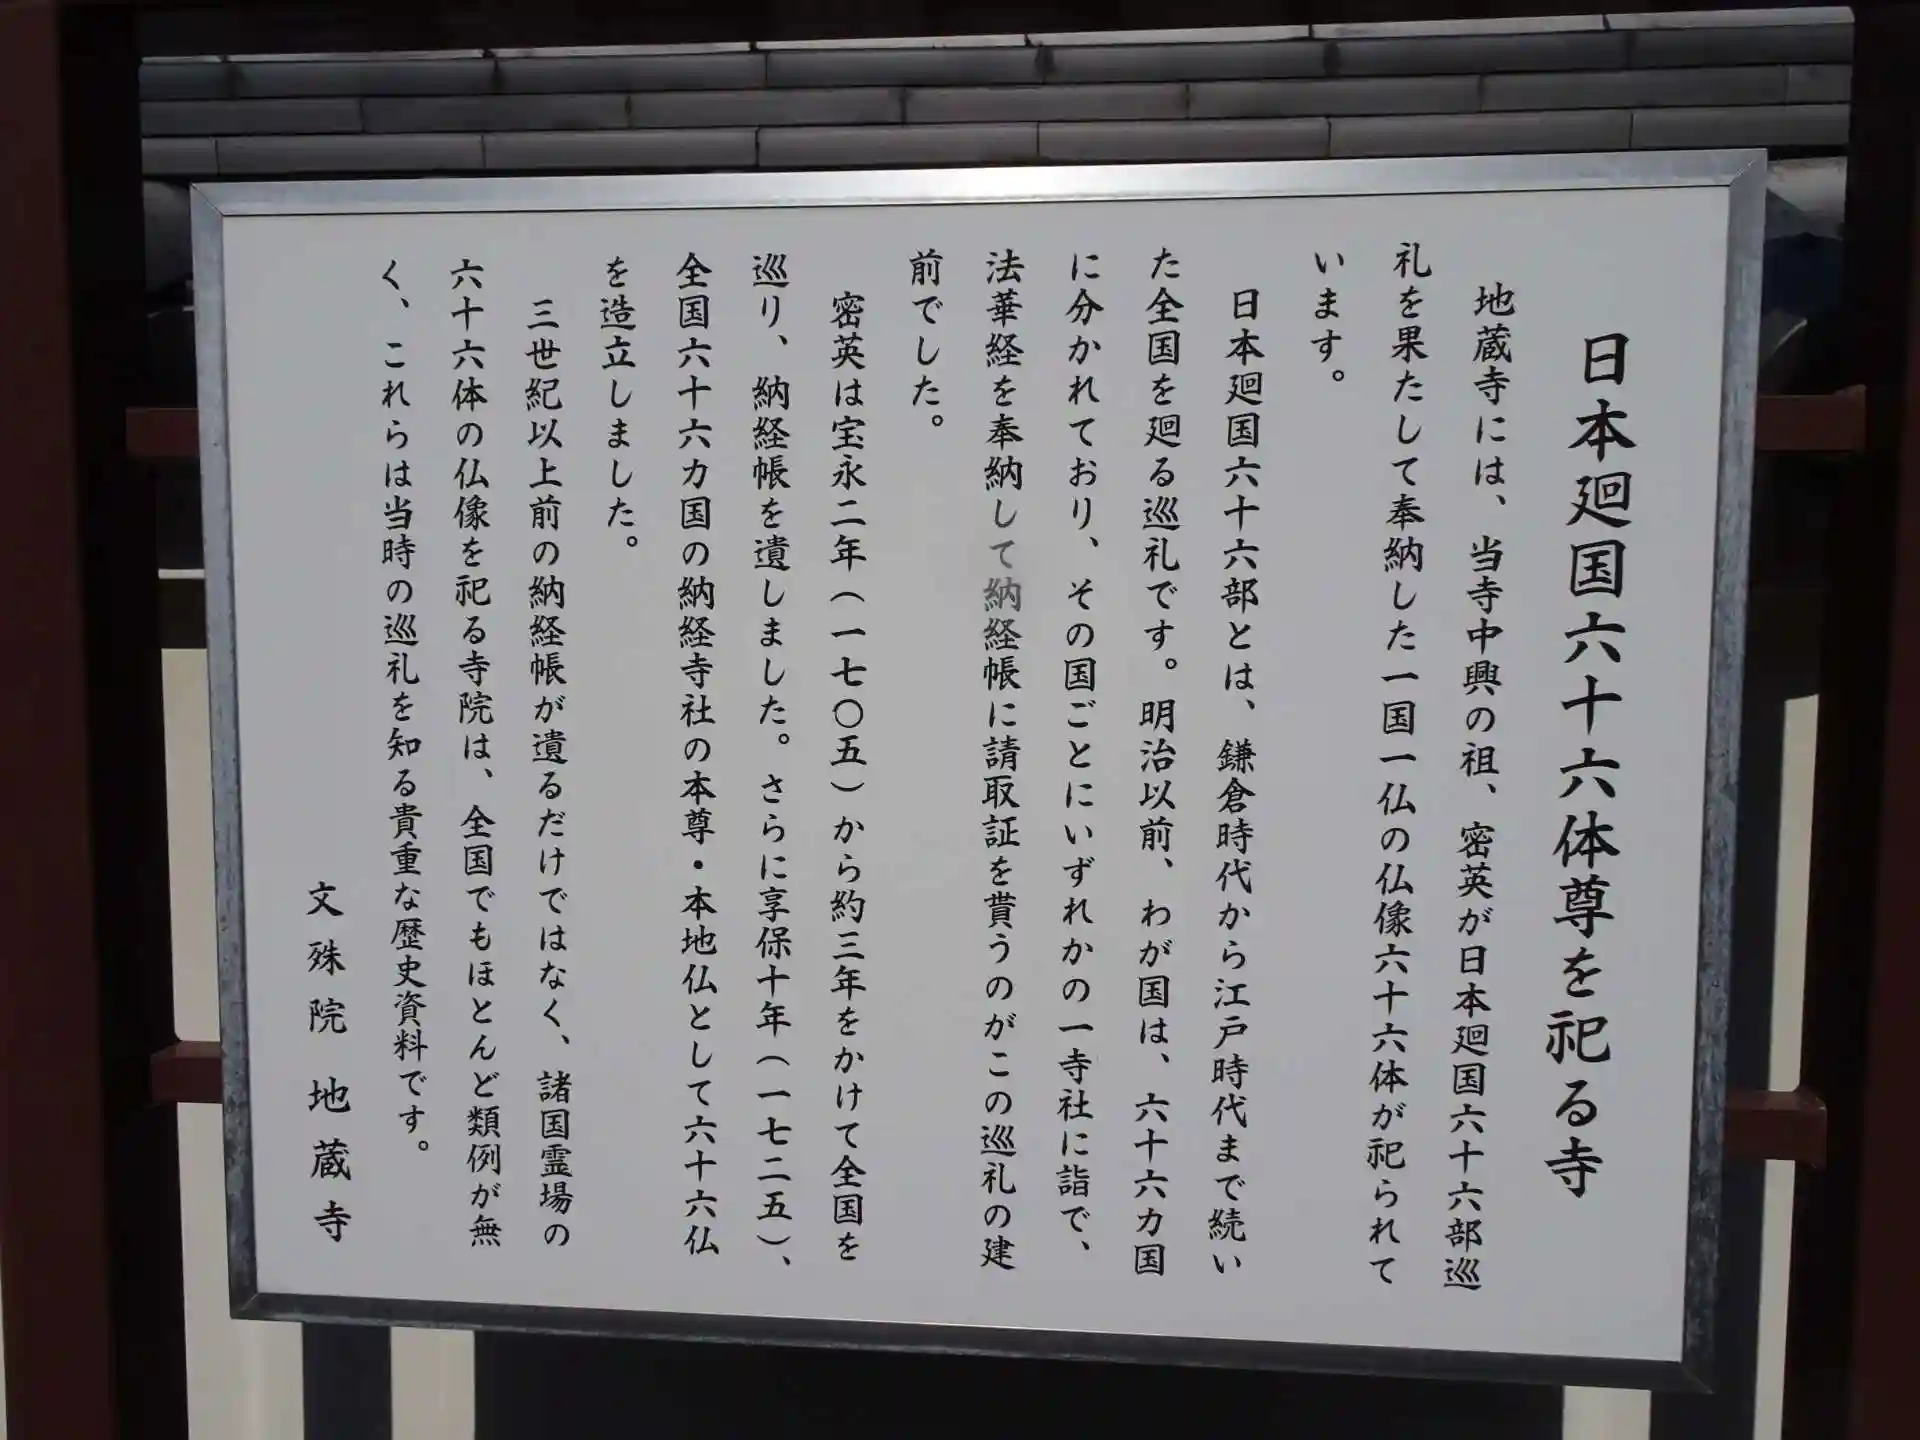 日本廻国六十六体尊を祀る寺
地蔵寺には、当寺中興の祖、密英が日本廻国六十六部巡
礼を果たして奉納した一国一仏の仏像六十六体が祀られて
います。
日本廻国六十六部とは、鎌倉時代から江戸時代まで続い
た全国を廻る巡礼です。明治以前、わが国は、六十六カ国
に分かれており、その国ごとにいずれかの一寺社に詣で、
法華経を奉納して納経帳に請取証を貰うのがこの巡礼の建
前でした。
密英は宝永二年(一七〇五)から約三年をかけて全国を
巡り、納経帳を遺しました。さらに享保十年(一七二五)、
全国六十六カ国の納経寺社の本尊・本地仏として六十六仏
を造立しました。
三世紀以上前の納経帳が遺るだけではなく、諸国霊場の
六十六体の仏像を祀る寺院は、全国でもほとんど類例が無
く、これらは当時の巡礼を知る貴重な歴史資料です。
文殊院 地蔵寺